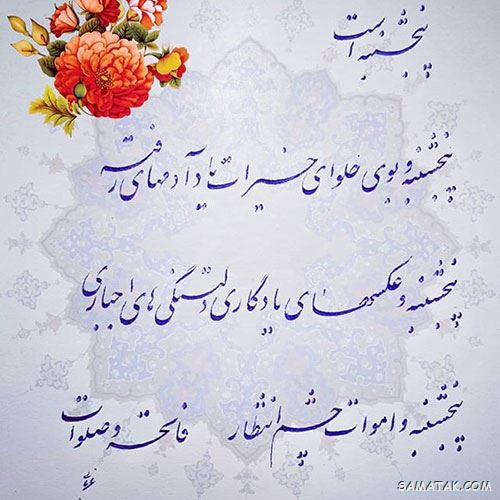 پنجشنبه است
پنجشنبه و بوی حلوای خیرات یاد آدمهای رفته
پنجشنبه و عکسهای یادگاری دلتنگی های اجباری
پنجشنبه و اموات چشم انتظار فاتحه و صلوات
SAMATAK.COM